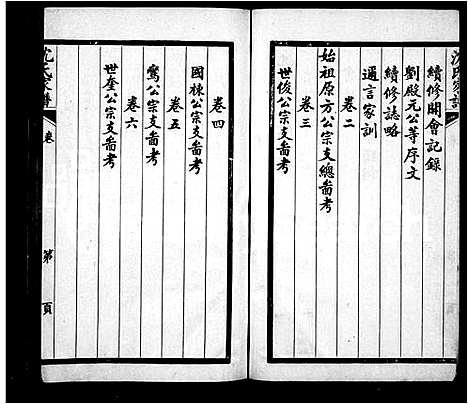 沈氏家譜
續修開會記錄
劉殿元公等序文
續修誌略
邇言家訓
卷二
始祖原方公宗支總啚考
卷三
世俊公宗支啚考
卷四
國棟公宗支啚考
卷五
鸞公宗支啚考
卷六
世奎公宗支啚考
沈氏家譜
卷
第 頁